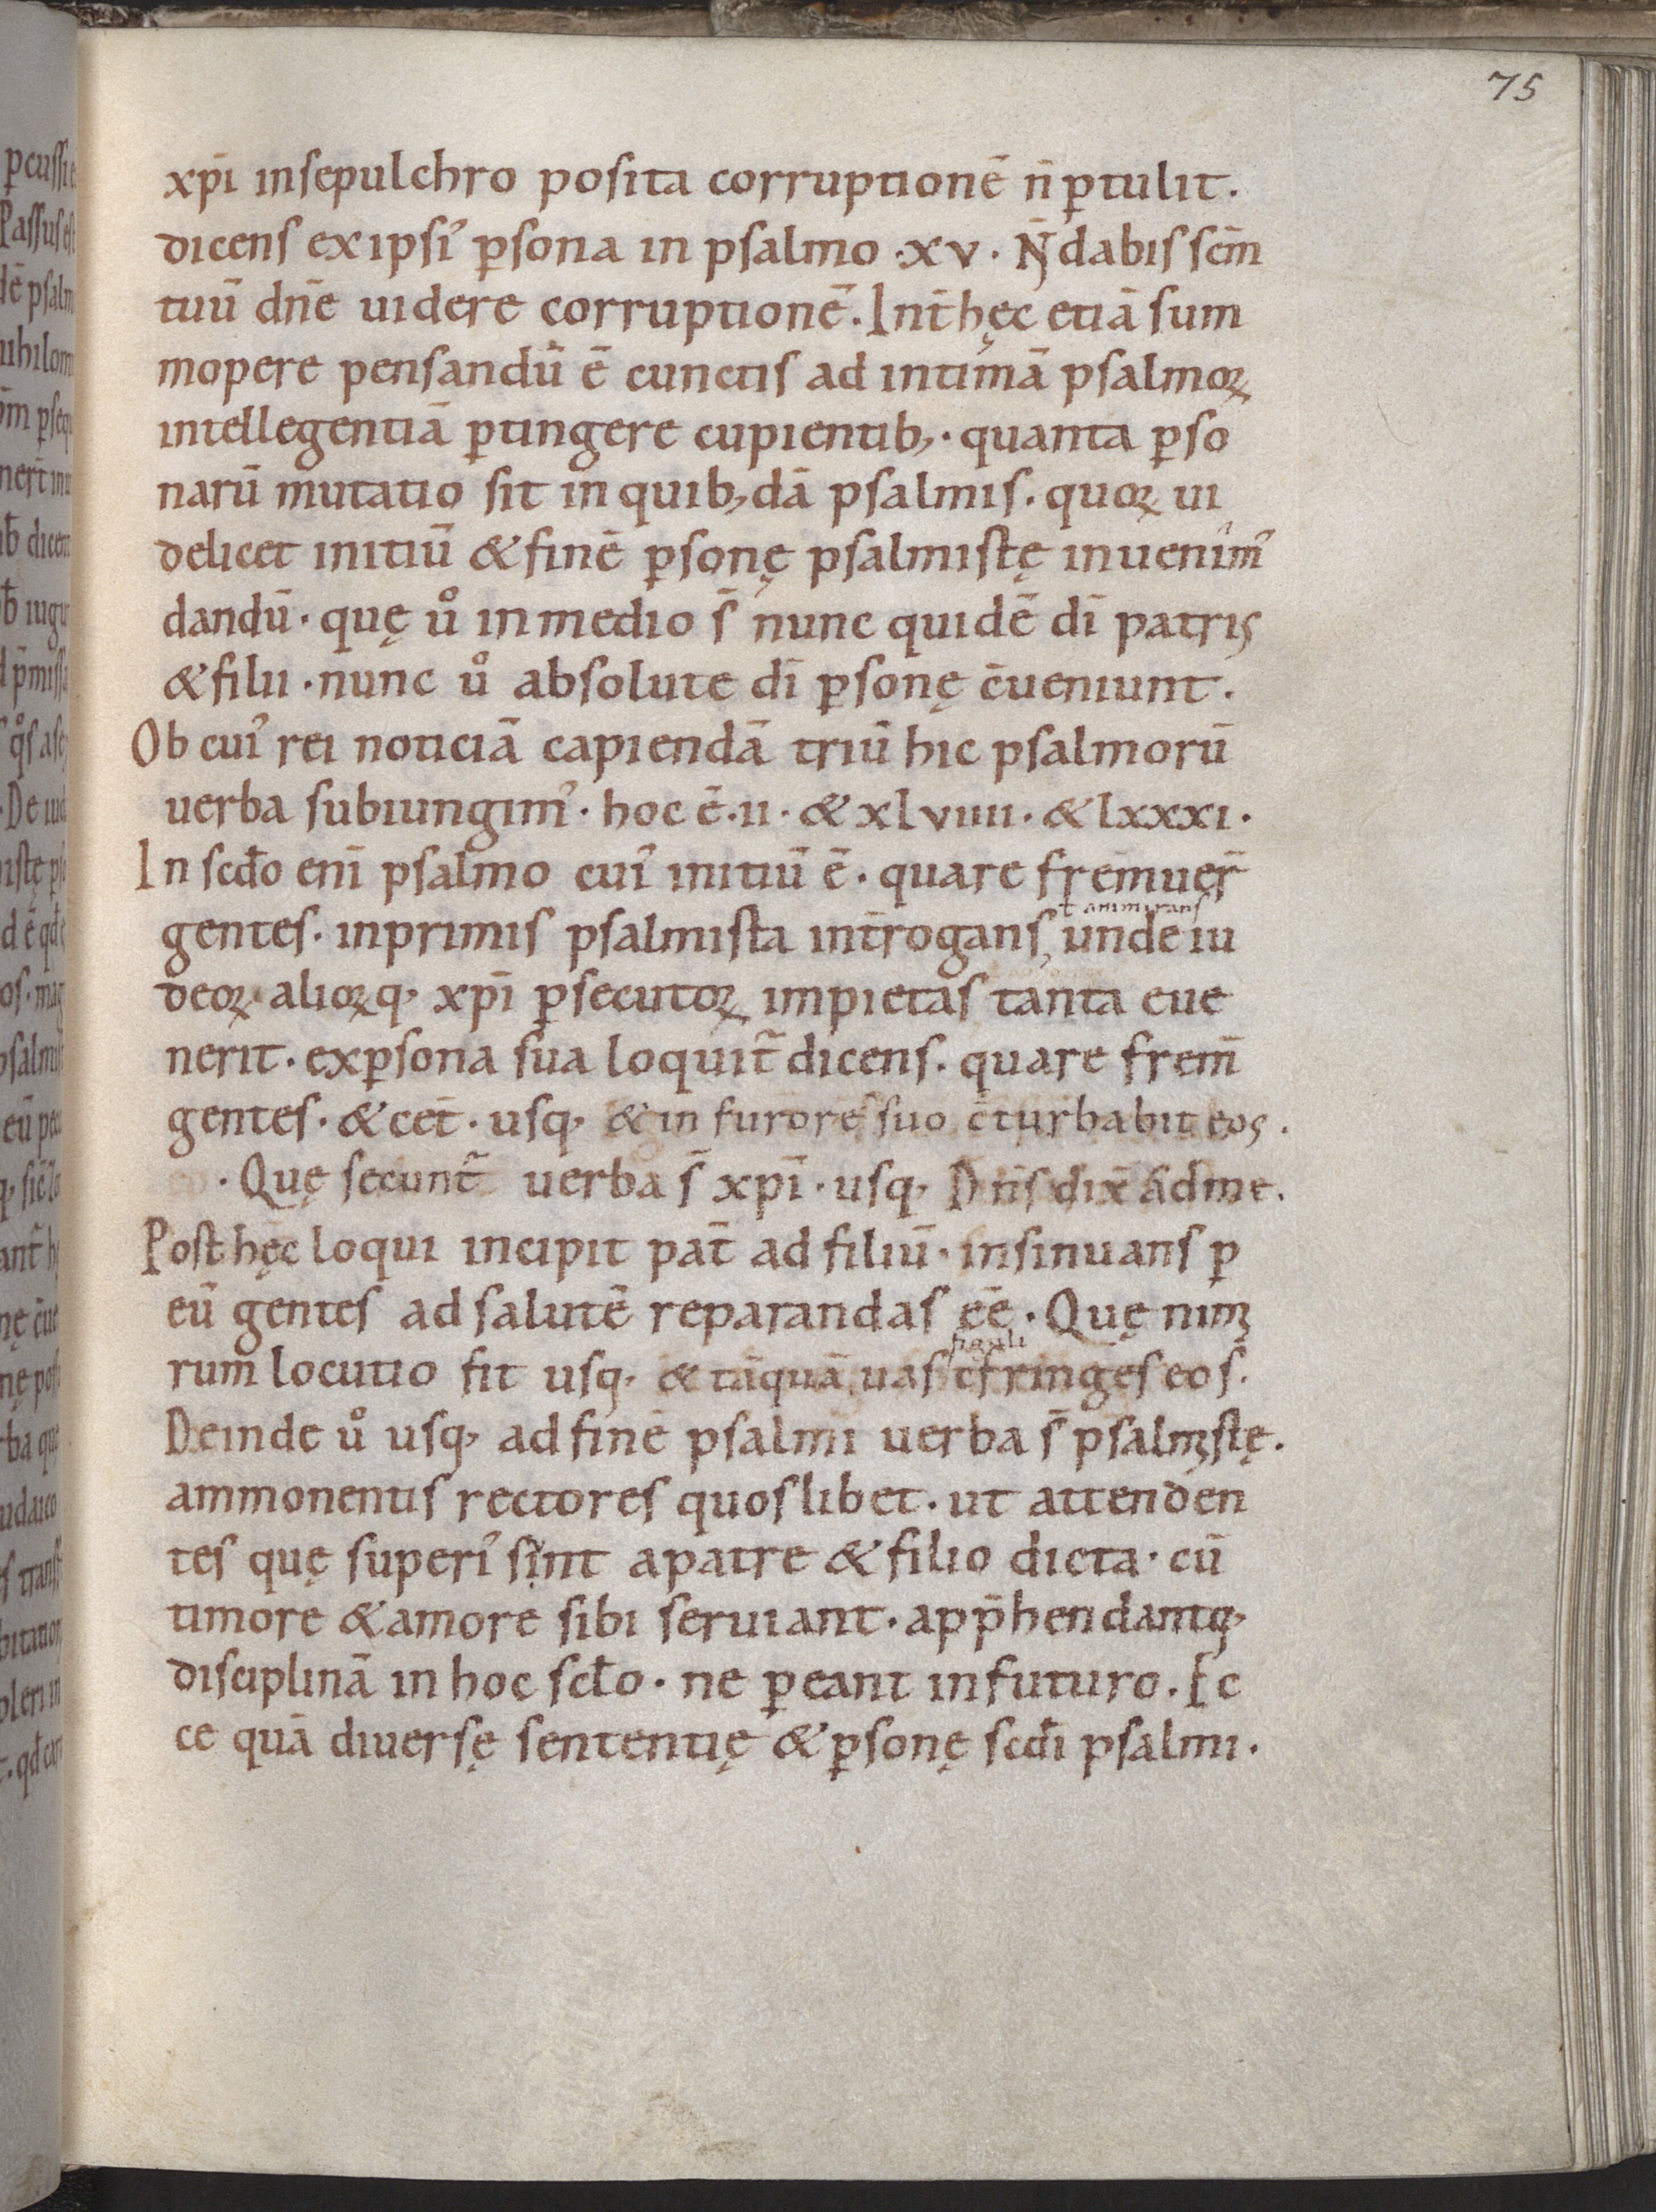 75
xp̄i insepulchro posita corruptionē n̄ ꝑtulit.
dicens exipsiꝰ ꝑsona in psalmo ·xv· N̄ dabis scm̄
tuū dn̄e uidere corruptionē. Int̄ hęc etiā sum
mopere pensandū ē cunctis ad intimā psalmoꝝ
intellegentiā ꝑtingere cupientib; · quanta ꝑso
narū mutatio sit in quib;dā psalmis. quoꝝ ui
delicet initiū & finē ꝑsonę psalmistę inuenimꝰ
dandū · quę uº in medio s̄ nunc quidē dī patris
& filii · nunc uº absolute dī ꝑsonę c̄ueniunt.
Ob cuiꝰ rei noticiā capiendā triū hic psalmorū
uerba subiungimꝰ · hoc ē ·ii· & xlviiii · & lxxxi ·
In scđo eni̅ psalmo cuiꝰ initiū ē · quare fremuer̄
ł ammirans
gentes · inprimis psalmista int̄rogans, unde iu
deoꝝ alioꝝq; xp̄i ꝑsecutoꝝ impietas tanta eue
nerit · exꝑsona sua loquit̄ dicens. quare frem̄
gentes · & cet̄ · usq; & in furore suo c̄turbabit eos.
· Quę secunt̄ uerba s̄ xp̄i · usq; Dn̄s dix̄ ad me.
Post hęc loqui incipit pat̄ ad filiū · insinuans ꝑ
eū gentes ad salutē reparandas ēē · Quę nimi
figuli
rum locutio fit usq; & tāquā uas c̄fringes eos.
Deinde uº usq; ad finē psalmi uerba s̄ psalmistę.
ammonentis rectores quoslibet · ut attenden
tes quę superiꝰ sint apatre & filio dicta · cū
timore & amore sibi seruiant · app̄hendantq;
disciplinā in hoc scło · ne ꝑeant infuturo. Ec
ce quā diuersę sententię & ꝑsonę scđi psalmi ·